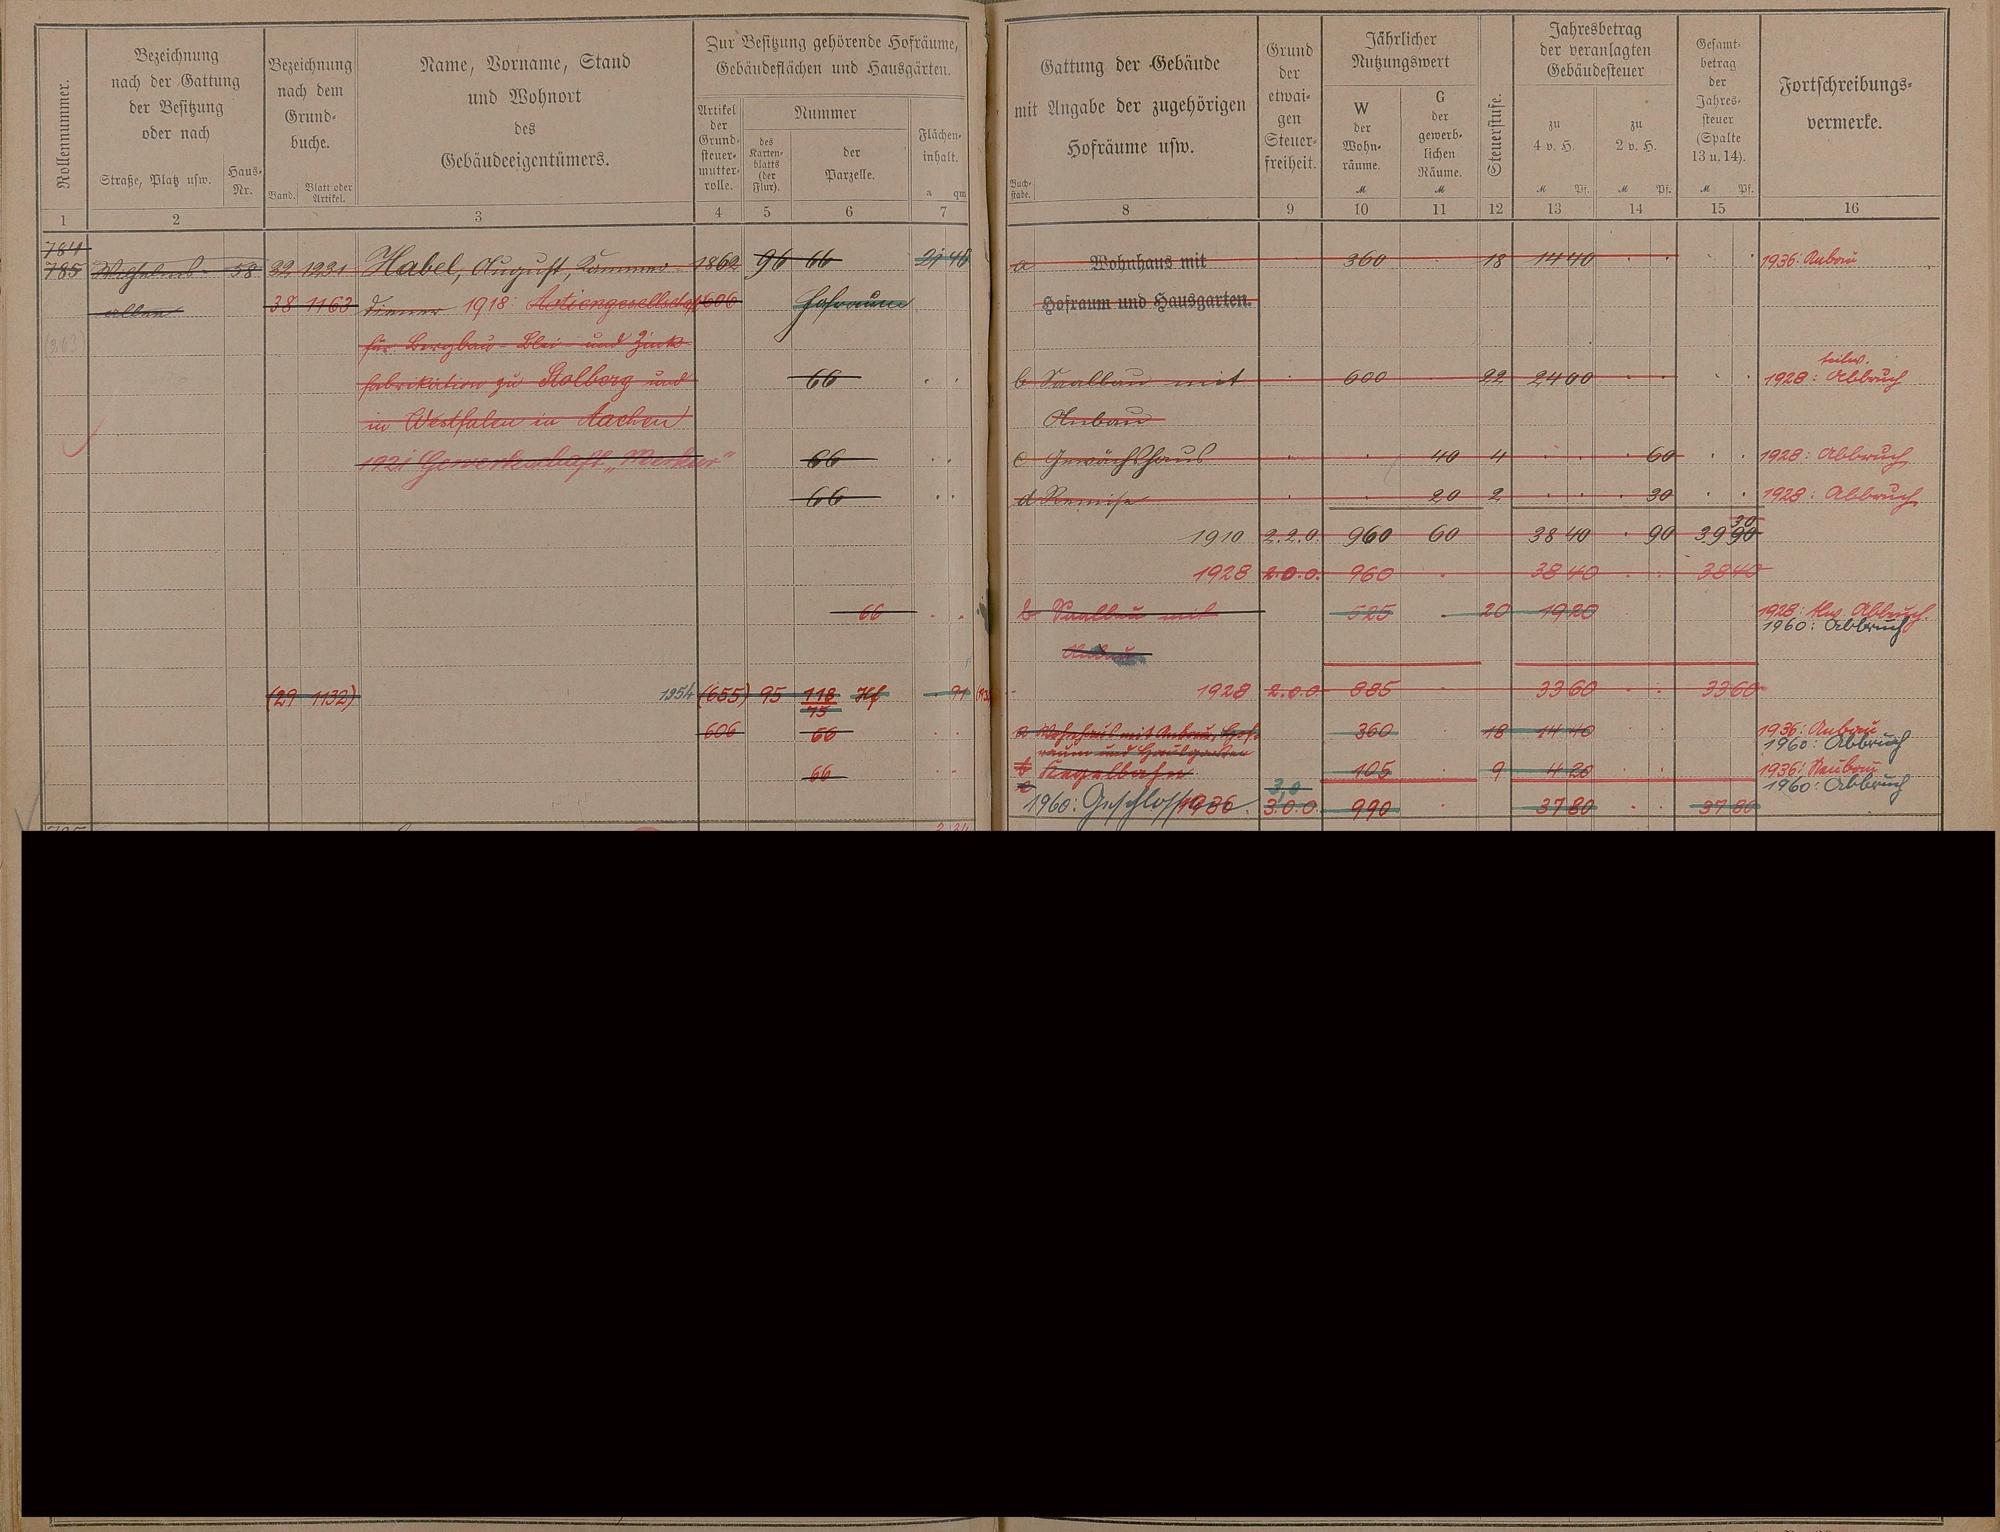 Rollennummer.
Bezeichnung
nach der Gattung
der Besitzung
oder nach
Straße, Platz usw.
Haus-
Nr.
Bezeichnung
nach dem
Grund-
buche.
Band.
Blatt oder
Artikel.
Name, Vorname, Stand
und Wohnort
des
Gebäudeeigentümers.
Zur Besitzung gehörende Hofräume,
Gebäudeflächen und Hausgärten.
Artikel
der
Grund-
steuer-
mutter-
rolle.
Nummer
des
Karten-
blatts
(der
Flur).
der
Parzelle.
Flächen-
inhalt.
a qm
Gattung der Gebäude
mit Angabe der zugehörigen
Hofräume usw.
Buch-
stabe.
Grund
der
etwai-
gen
Steuer-
freiheit.
Jährlicher
Nutzungswert
W
der
Wohn-
räume.
M
G
der
gewerb-
lichen
Räume.
M
Steuerstufe.
Jahresbetrag
der veranlagten
Gebäudesteuer
zu
4 v. H.
M Pf.
zu
2 v. H.
M Pf.
Gesamt-
betrag
der
Jahres-
steuer
(Spalte
13 u. 14).
M Pf.
Fortschreibungs-
vermerke.
1 2 3 4 5 6 7 8 9 10 11 12 13 14 15 16
784
785 Wilhelms- 58 32 1231 Habel, August, Kammer- 1862 96 66 21 46 a Wohnhaus mit 360 18 14 40 1936: Anbau
allee 38 1163 diener 1918: Actiengesellschaft 606 Hofraum Hofraum und Hausgarten.
(363) für Bergbau- Blei- und Zink-
teilw.
fabrikation zu Stolberg und 66 b Saalbau mit 600 22 24 00 1928: Abbruch
in Westfalen in Aachen Anbau
1921 Gewerkschaft „Merkur" 66 c Gewächshaus 40 4 60 1928: Abbruch
66 d Remise 20 2 30 1928: Abbruch
30
1910 2.2.0. 960 60 38 40 90 39 90
1928 2.0.0. 960 38 40 38 40
66 b Saalbau mit 525 20 19 20 1928: tlw. Abbruch.
1960: Abbruch
Anbau
(29 1132) 1954 (655) 95 118/75 Hf 91 1928 2.0.0 885 33 60 33 60
606 66 a Wohnhaus mit Anbau, Hof- 360 18 14 40 1936: Anbau
raum und Hausgarten 1960: Abbruch
66 Kegelbahn 105 9 4 20 1936: Neubau
1960: Abbruch
3,0
1960: Geschlossen 1936 3.0.0. 990 37 80 37 80